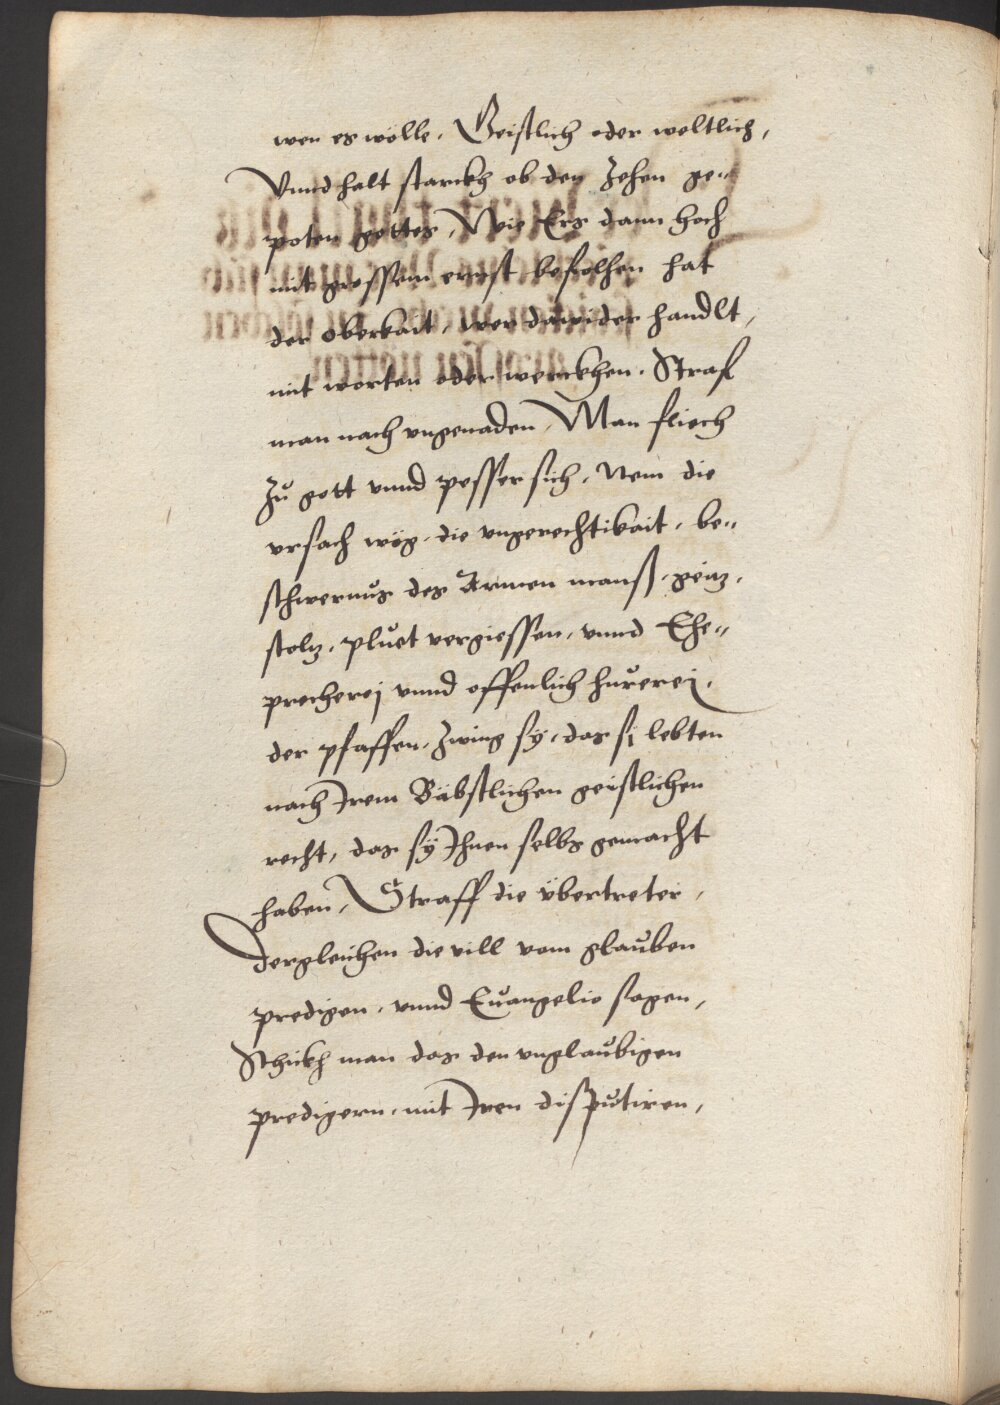 wen es wölle, Geistlich oder weltlich,
Vnnd halt starckh ob den zehen ge„
poten gottes, Wie Ers dann hoch
mit grossem ernst befolhen hat
der oberkait, wer dawider handlt,
mit worten oder werckhen. Straf
man nach vngenaden, Man fliech
zů gott vnnd pesser sich. Nem die
vrsach wëg, die vngerechtikait, be„
schwernůs des Armen manß, geitz,
stoltz, plůet vergiessen, vnnd Ehe„
precherej vnnd offenlich hůrerej,
der pfaffen, zwing sÿ, das si lebten
nach Jrem Bäbstlichen geistlichen
recht, das sÿ Jhnen selbs gemacht
haben, Straff die übertreter,
dergleichen die vill vom glaůben
predigen, vnnd Euangelio sagen,
Schickh man das den vnglaůbigen
predigern, mit Jren dispůtiren,